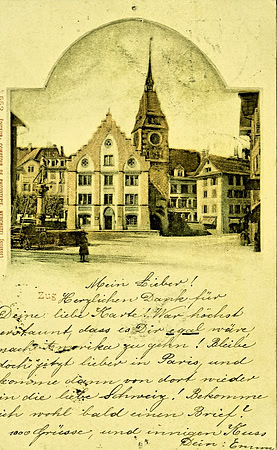 Zug
Mein Lieber!
Herzlichen Dank für
Deine liebe Karte! War höchst
erstaunt, dass es Dir egal wäre
nach Amerika zu gehn! Bleibe
doch jetzt lieber in Paris, und
komme dann von dort wieder
in die liebe Schweiz! Bekomme
ich wohl bald einen Brief?
1000 Grüsse, und innigen Kuss
Dein: